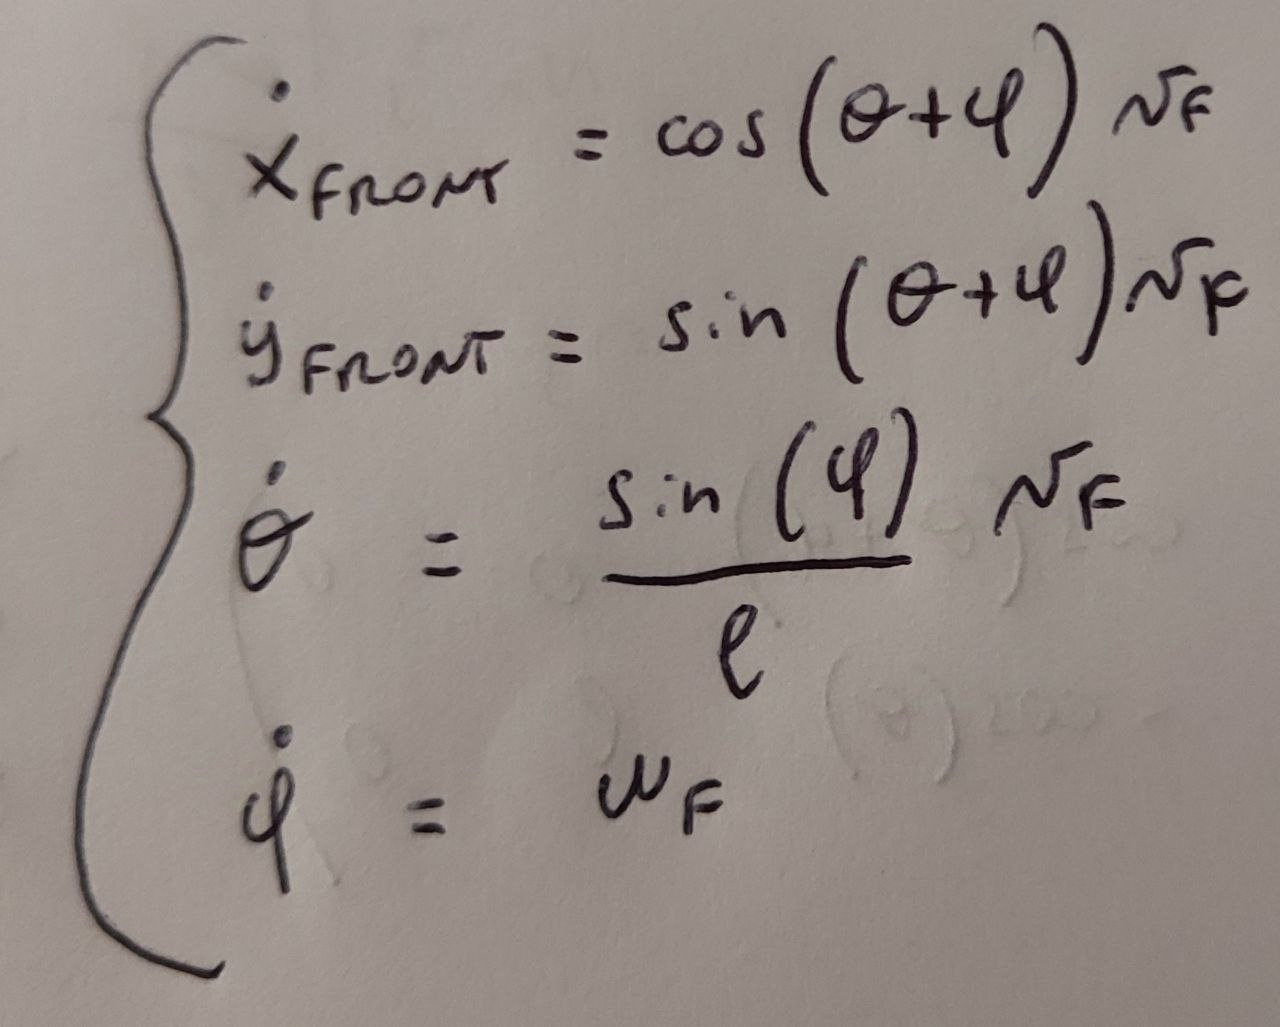 ẋ_FRONT = cos(θ+φ) v_F
ẏ_FRONT = sin(θ+φ) v_F
θ̇ = sin(φ)/ℓ v_F
φ̇ = ω_F